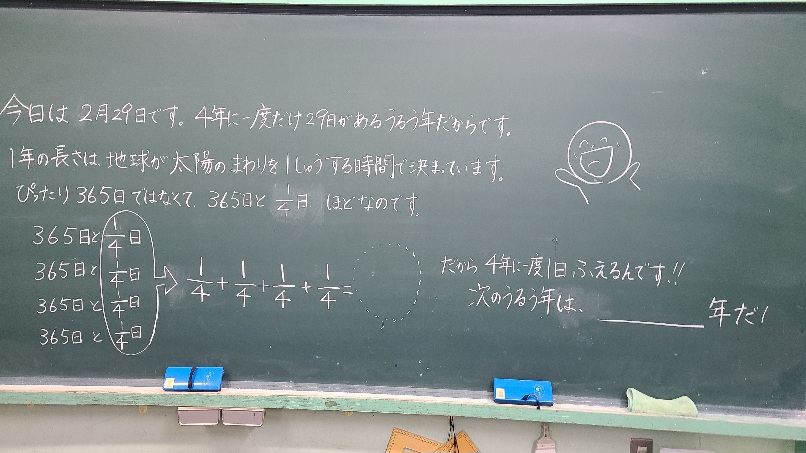 今日は 2月29日です。4年に一度だけ29日があるうるう年だからです。
1年の長さは、地球が太陽のまわりを1しゅうする時間で決まっています。
ぴったり365日ではなくて、365日と1/4日ほどなのです。
365日と1/4日
365日と1/4日
365日と1/4日
365日と1/4日
1/4+1/4+1/4+1/4=
だから4年に一度1日、ふえるんです!!
次のうるう年は、______年だ!